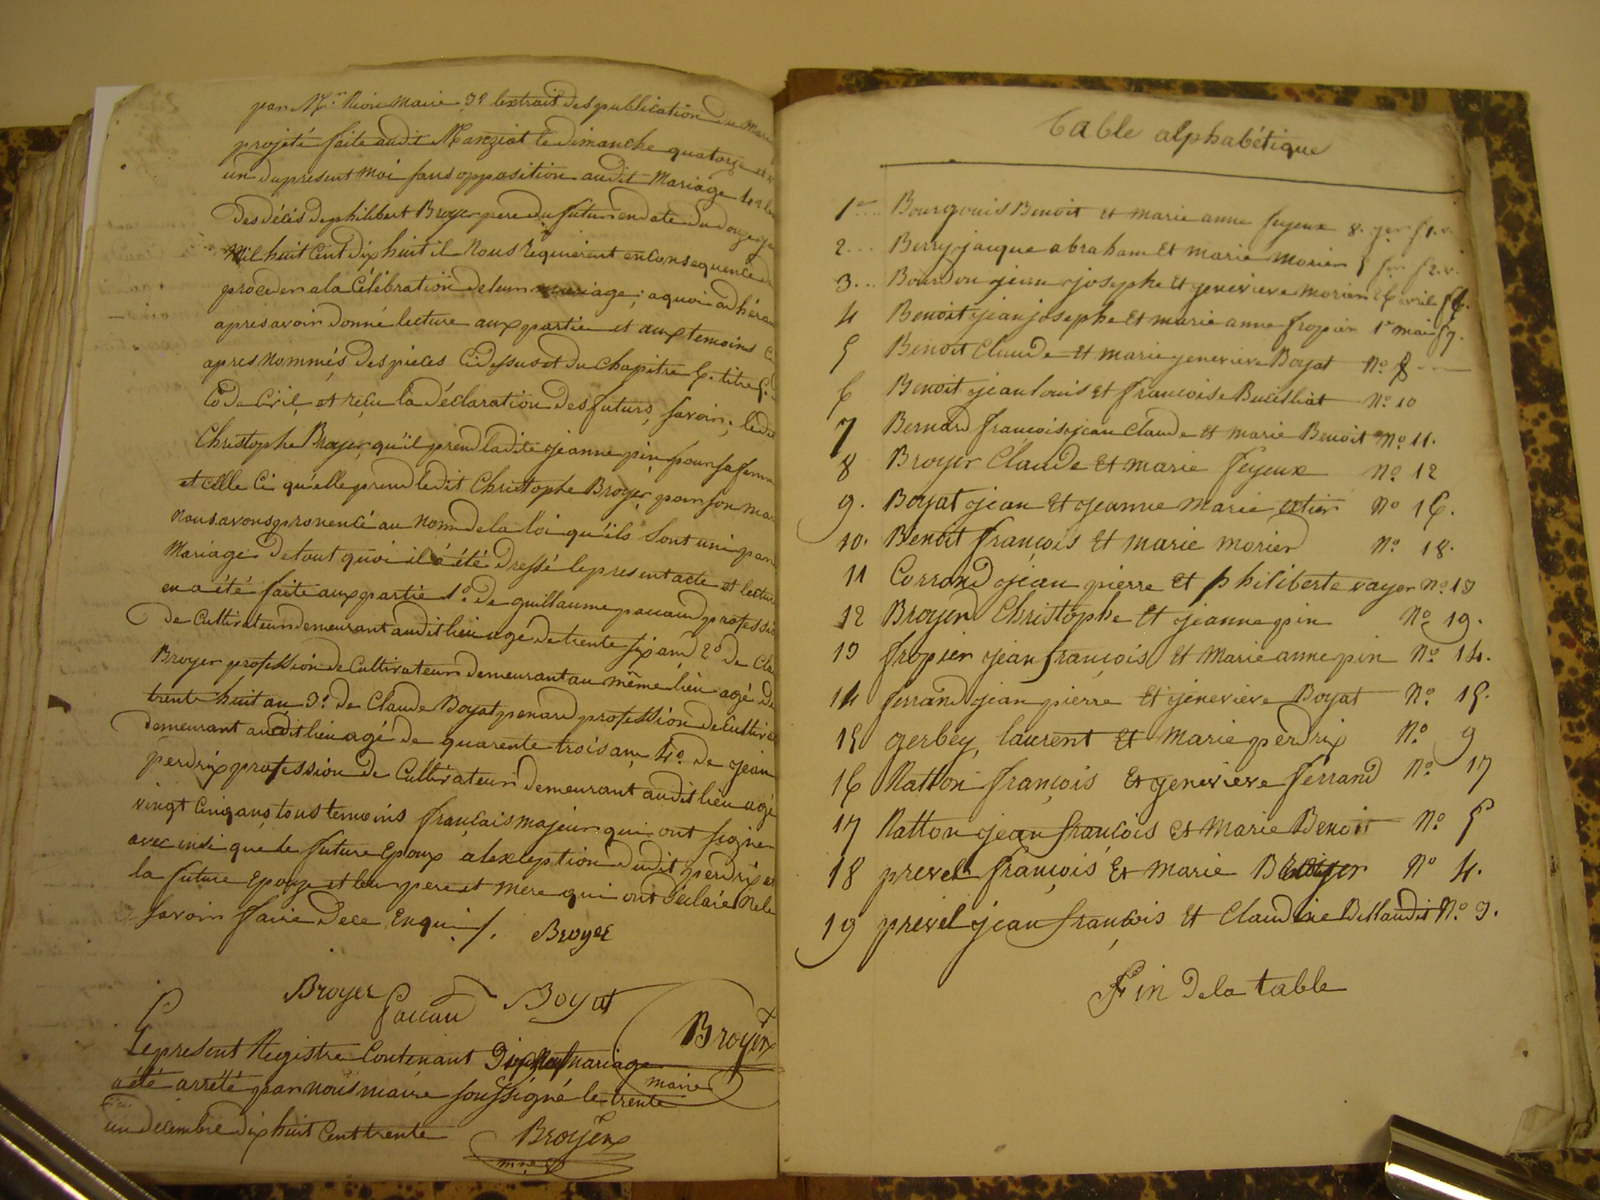 jean M.r Rion Maire 3.o l'extrait des publication du Mari
projeté faite audit Manziat le dimanche quatorze et
un du present Moi sans opposition audit Mariage
des décés de philibert Broyer pere du futur en date du douze
Mil huit Cent Dix huit il Nous Requierent en Consequence
proceder a la Célébration de leur mariage; a quoi adhéran
apres avoir donné lecture aux partie et aux temoins Ci
apres Nommés des pieces Ci dessus et du Chapitre 6. titre 5.
Code Civil, et recu la déclaration des futurs, savoir; ledit
Christophe Broyer qu'il prend ladite jeanne pin pour sa femm
et Celle Ci qu'elle prend ledit Christophe Broyer, pour son ma
Nous avons prononcé au Nom de la loi qu'ils sont uni par
Mariage De tout quoi il a été Dressé le present acte et lectur
en a été faite aux partie 1.o de guillaume paucaud professi
de Cultivateur demeurant audit lieu agé de trente six ans 2.o de Cla
Broyer profession de Cultivateur demeurant au même lieu agé de
trente huit an 3.o de Claude Boyat penard profession de Cultiva
demeurant audit lieu agé de quarente trois ans 4.o de jean
perdrix profession de Cultivateur demeurant audit lieu agé
vingt Cinq ans tous temoins français majeur qui ont signe
avec insi que le future Epoux a l'exception dudit perdrix et
la future Epouze et leur pere et mere qui ont déclaré Ne le
savoir faire de ce Enqui /. Broyer
Broyer Paucau Boyat
Broyer
maire
Le present Registre Contenant Dix Neuf mariage
a été arrêté par nous maire soussigné le trente
un decembre dix huit Cent trente Broyer
mre
table alphabétique
1er Bourgouis Benoit et marie anne feyeux 8. jer f 1.r
2 Berry jacque abraham Et marie Morier f 2. v.
3 Bourdon jean josephe Et genevieve morier avril f 6.
4 Benoit jean josephe Et marie anne fropier 1er mai f 7.
5 Benoit Claude Et marie genevieve Boyat No. 8
6 Benoit jean louis Et francoise Buellat No. 10
7 Bernard francois jean Claude Et marie Benoit No. 11.
8 Broyer Claude Et marie feyeux No. 12
9. Boyat jean Et jeanne Marie catier No 16.
10. Benoit francois Et marie morier No. 18.
11 Corrand jean pierre Et philiberte vayer No. 13
12 Broyer Christophe Et jeanne pin No. 19.
13 fropier jean francois Et Marie anne pin No. 14.
14 ferrand jean pierre Et genevieve Boyat No. 15.
15 gerbey, laurent Et Marie perdrix No. 9
16 Natton françois Et genevieve ferrand No. 17
17 Natton jean francois Et Marie Benoit No. 5
18 prevel françois Et Marie Broyer No 4.
19 prevel jean françois Et Claudine Billaudit No. 3.
Fin de la table